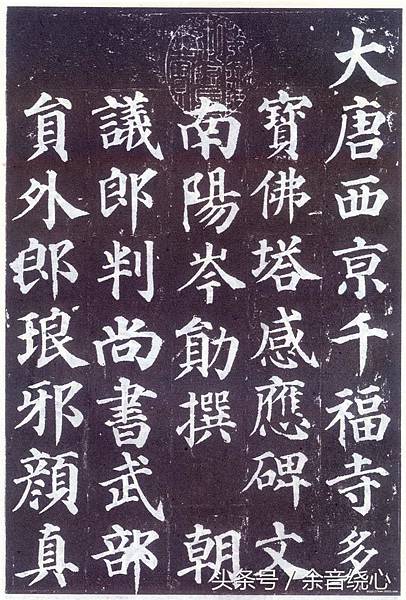 大唐西京千福寺多
寶佛塔感應碑文
南陽岑勛撰 朝
議郎判尚書武部
貟外郎琅邪顏真
头条号 / 余音绕心